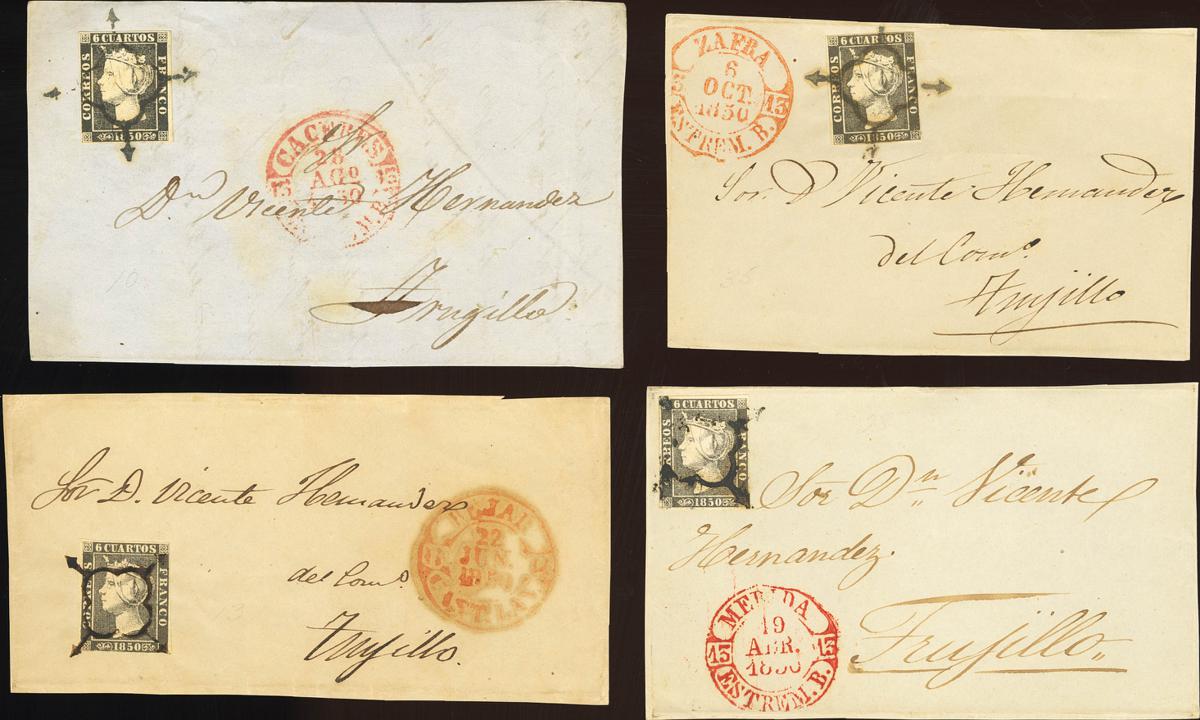 6 CUARTOS
CORREOS
FRANCO
1850
CACERES
28
AGO
13
Dn Vicente Hernandez
Trugillo
ZAFRA
6
OCT.
1850
13
ESTREM. B.
6 CUARTOS
CORREOS
FRANCO
1850
Sor. D Vicente Hernandez
del Como.
Trujillo
Sor D. Vicente Hernandez
BEJAR
22
JUN.
1850
6 CUARTOS
CORREOS
FRANCO
1850
del Como.
Trujillo.
6 CUARTOS
CORREOS
FRANCO
1850
Sor Dn Vicente
Hernandez.
MERIDA
19
ABR.
1850
13
13
ESTREM. B.
Trujillo